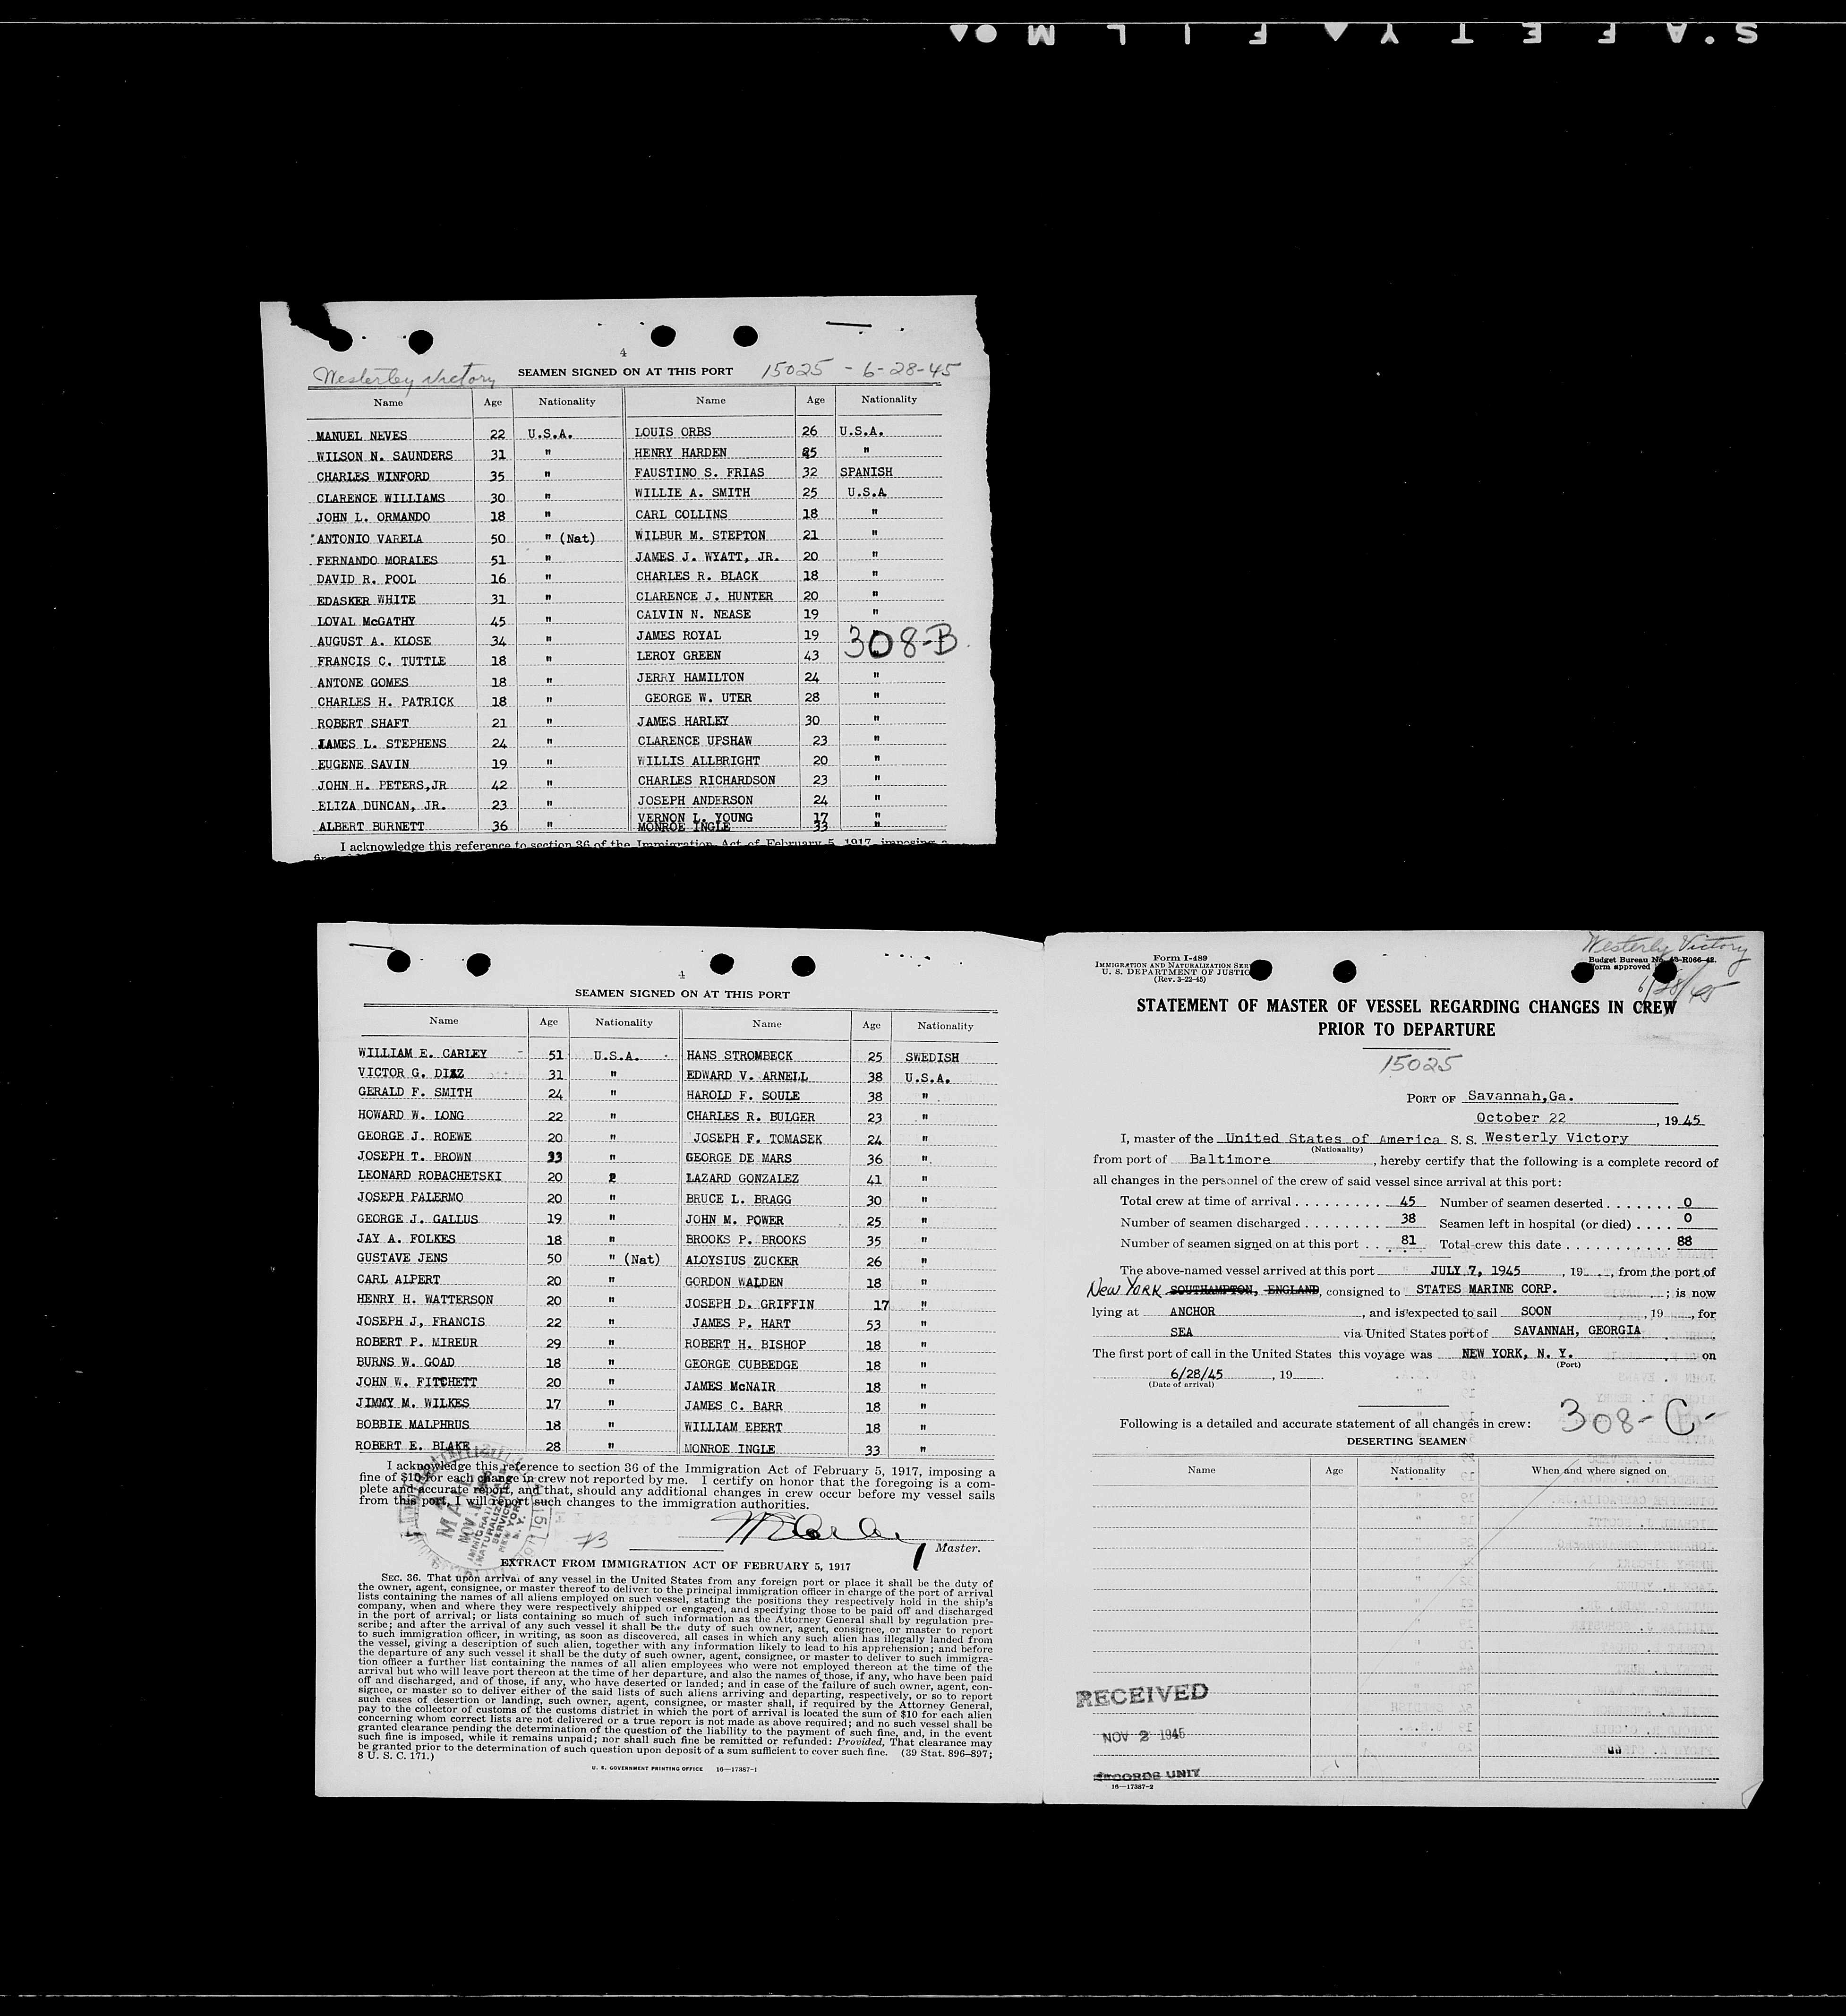 SAFETY FILM
4
Westerley Victory SEAMEN SIGNED ON AT THIS PORT 15025 - 6-28-45
Name Age Nationality Name Age Nationality
MANUEL NEVES 22 U.S.A. LOUIS ORBS 26 U.S.A.
WILSON N. SAUNDERS 31 " HENRY HARDEN 25 "
CHARLES WINFORD 35 " FAUSTINO S. FRIAS 32 SPANISH
CLARENCE WILLIAMS 30 " WILLIE A. SMITH 25 U.S.A
JOHN L. ORMANDO 18 " CARL COLLINS 18 "
ANTONIO VARELA 50 " (Nat) WILBUR M. STEPTON 21 "
FERNANDO MORALES 51 " JAMES J. WYATT, JR. 20 "
DAVID R. POOL 16 " CHARLES R. BLACK 18 "
EDASKER WHITE 31 " CLARENCE J. HUNTER 20 "
LOVAL McGATHY 45 " CALVIN N. NEASE 19 "
AUGUST A. KLOSE 34 " JAMES ROYAL 19 308-B
FRANCIS C. TUTTLE 18 " LEROY GREEN 43
ANTONE GOMES 18 " JERRY HAMILTON 24 "
CHARLES H. PATRICK 18 " GEORGE W. UTER 28 "
ROBERT SHAFT 21 " JAMES HARLEY 30 "
JAMES L. STEPHENS 24 " CLARENCE UPSHAW 23 "
EUGENE SAVIN 19 " WILLIS ALLBRIGHT 20 "
JOHN H. PETERS,JR 42 " CHARLES RICHARDSON 23 "
ELIZA DUNCAN, JR. 23 " JOSEPH ANDERSON 24 "
ALBERT BURNETT 36 " VERNON L. YOUNG 17 "
MONROE INGLE 33 "
I acknowledge this reference to section 36 of the Immigration Act of February 5, 1917, imposing a
4
SEAMEN SIGNED ON AT THIS PORT
Name Age Nationality Name Age Nationality
WILLIAM E. CARLEY 51 U.S.A. HANS STROMBECK 25 SWEDISH
VICTOR G. DIAZ 31 " EDWARD V. ARNELL 38 U.S.A.
GERALD F. SMITH 24 " HAROLD F. SOULE 38 "
HOWARD W. LONG 22 " CHARLES R. BULGER 23 "
GEORGE J. ROEWE 20 " JOSEPH F. TOMASEK 24 "
JOSEPH T. BROWN 33 " GEORGE DE MARS 36 "
LEONARD ROBACHETSKI 20 " LAZARD GONZALEZ 41 "
JOSEPH PALERMO 20 " BRUCE L. BRAGG 30 "
GEORGE J. GALLUS 19 " JOHN M. POWER 25 "
JAY A. FOLKES 18 " BROOKS P. BROOKS 35 "
GUSTAVE JENS 50 " (Nat) ALOYSIUS ZUCKER 26 "
CARL ALPERT 20 " GORDON WALDEN 18 "
HENRY H. WATTERSON 20 " JOSEPH D. GRIFFIN 17 "
JOSEPH J, FRANCIS 22 " JAMES P. HART 53 "
ROBERT P. MIREUR 29 " ROBERT H. BISHOP 18 "
BURNS W. GOAD 18 " GEORGE CUBBEDGE 18 "
JOHN W. FITCHETT 20 " JAMES McNAIR 18 "
JIMMY M. WILKES 17 " JAMES C. BARR 18 "
BOBBIE MALPHRUS 18 " WILLIAM EBERT 18 "
ROBERT E. BLAKE 28 " MONROE INGLE 33 "
I acknowledge this reference to section 36 of the Immigration Act of February 5, 1917, imposing a
fine of $10 for each change in crew not reported by me. I certify on honor that the foregoing is a com-
plete and accurate report, and that, should any additional changes in crew occur before my vessel sails
from this port, I will report such changes to the immigration authorities.
Master.
EXTRACT FROM IMMIGRATION ACT OF FEBRUARY 5, 1917
SEC. 36. That upon arrival of any vessel in the United States from any foreign port or place it shall be the duty of
the owner, agent, consignee, or master thereof to deliver to the principal immigration officer in charge of the port of arrival
lists containing the names of all aliens employed on such vessel, stating the positions they respectively hold in the ship's
company, when and where they were respectively shipped or engaged, and specifying those to be paid off and discharged
in the port of arrival; or lists containing so much of such information as the Attorney General shall by regulation pre-
scribe; and after the arrival of any such vessel it shall be the duty of such owner, agent, consignee, or master to report
to such immigration officer, in writing, as soon as discovered, all cases in which any such alien has illegally landed from
the vessel, giving a description of such alien, together with any information likely to lead to his apprehension; and before
the departure of any such vessel it shall be the duty of such owner, agent, consignee, or master to deliver to such immigra-
tion officer a further list containing the names of all alien employees who were not employed thereon at the time of the
arrival but who will leave port thereon at the time of her departure, and also the names of those, if any, who have been paid
off and discharged, and of those, if any, who have deserted or landed; and in case of the failure of such owner, agent, con-
signee, or master so to deliver either of the said lists of such aliens arriving and departing, respectively, or so to report
such cases of desertion or landing, such owner, agent, consignee, or master shall, if required by the Attorney General,
pay to the collector of customs of the customs district in which the port of arrival is located the sum of $10 for each alien
concerning whom correct lists are not delivered or a true report is not made as above required; and no such vessel shall be
granted clearance pending the determination of the question of the liability to the payment of such fine, and, in the event
such fine is imposed, while it remains unpaid; nor shall such fine be remitted or refunded: Provided, That clearance may
be granted prior to the determination of such question upon deposit of a sum sufficient to cover such fine. (39 Stat. 896-897;
8 U. S. C. 171.)
U. S. GOVERNMENT PRINTING OFFICE 16—17387-1
Westerly Victory
6/28/45
Form I-489
IMMIGRATION AND NATURALIZATION SER
U. S. DEPARTMENT OF JUSTIC
(Rev. 3-22-45)
Budget Bureau No. 43-R066-42.
Form approved
STATEMENT OF MASTER OF VESSEL REGARDING CHANGES IN CREW
PRIOR TO DEPARTURE
15025
PORT OF Savannah,Ga.
October 22, 1945
I, master of the United States of America S. S. Westerly Victory
(Nationality)
from port of Baltimore, hereby certify that the following is a complete record of
all changes in the personnel of the crew of said vessel since arrival at this port:
Total crew at time of arrival 45 Number of seamen deserted 0
Number of seamen discharged 38 Seamen left in hospital (or died) 0
Number of seamen signed on at this port 81 Total crew this date 88
The above-named vessel arrived at this port JULY 7, 1945, 19, from the port of
New YORK SOUTHAMPTON, ENGLAND, consigned to STATES MARINE CORP.; is now
lying at ANCHOR, and is expected to sail SOON, 19, for
SEA via United States port of SAVANNAH, GEORGIA
The first port of call in the United States this voyage was NEW YORK, N. Y. on
(Port)
6/28/45, 19
(Date of arrival)
308-C-
Following is a detailed and accurate statement of all changes in crew:
DESERTING SEAMEN
Name Age Nationality When and where signed on
RECEIVED
NOV 2 1945
RECORDS UNIT
16—17387-2